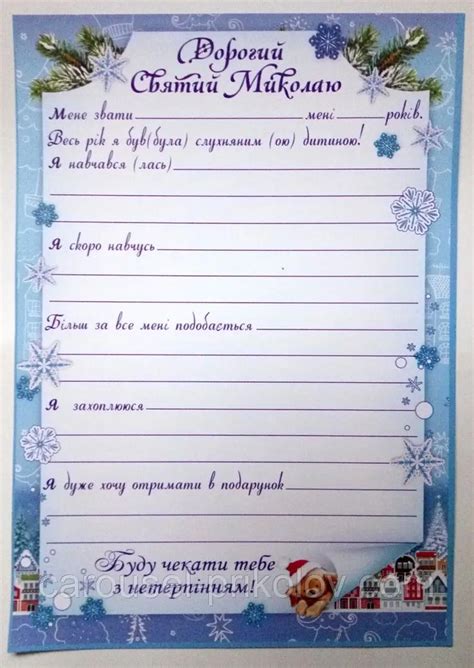 Дорогий
Святий Миколаю
Мене звати мені років.
Весь рік я був(була) слухняним (ою) дитиною!
Я навчався (лась)
Я скоро навчусь
Більш за все мені подобається
Я захоплююся
Я дуже хочу отримати в подарунок
Буду чекати тебе
з нетерпінням!